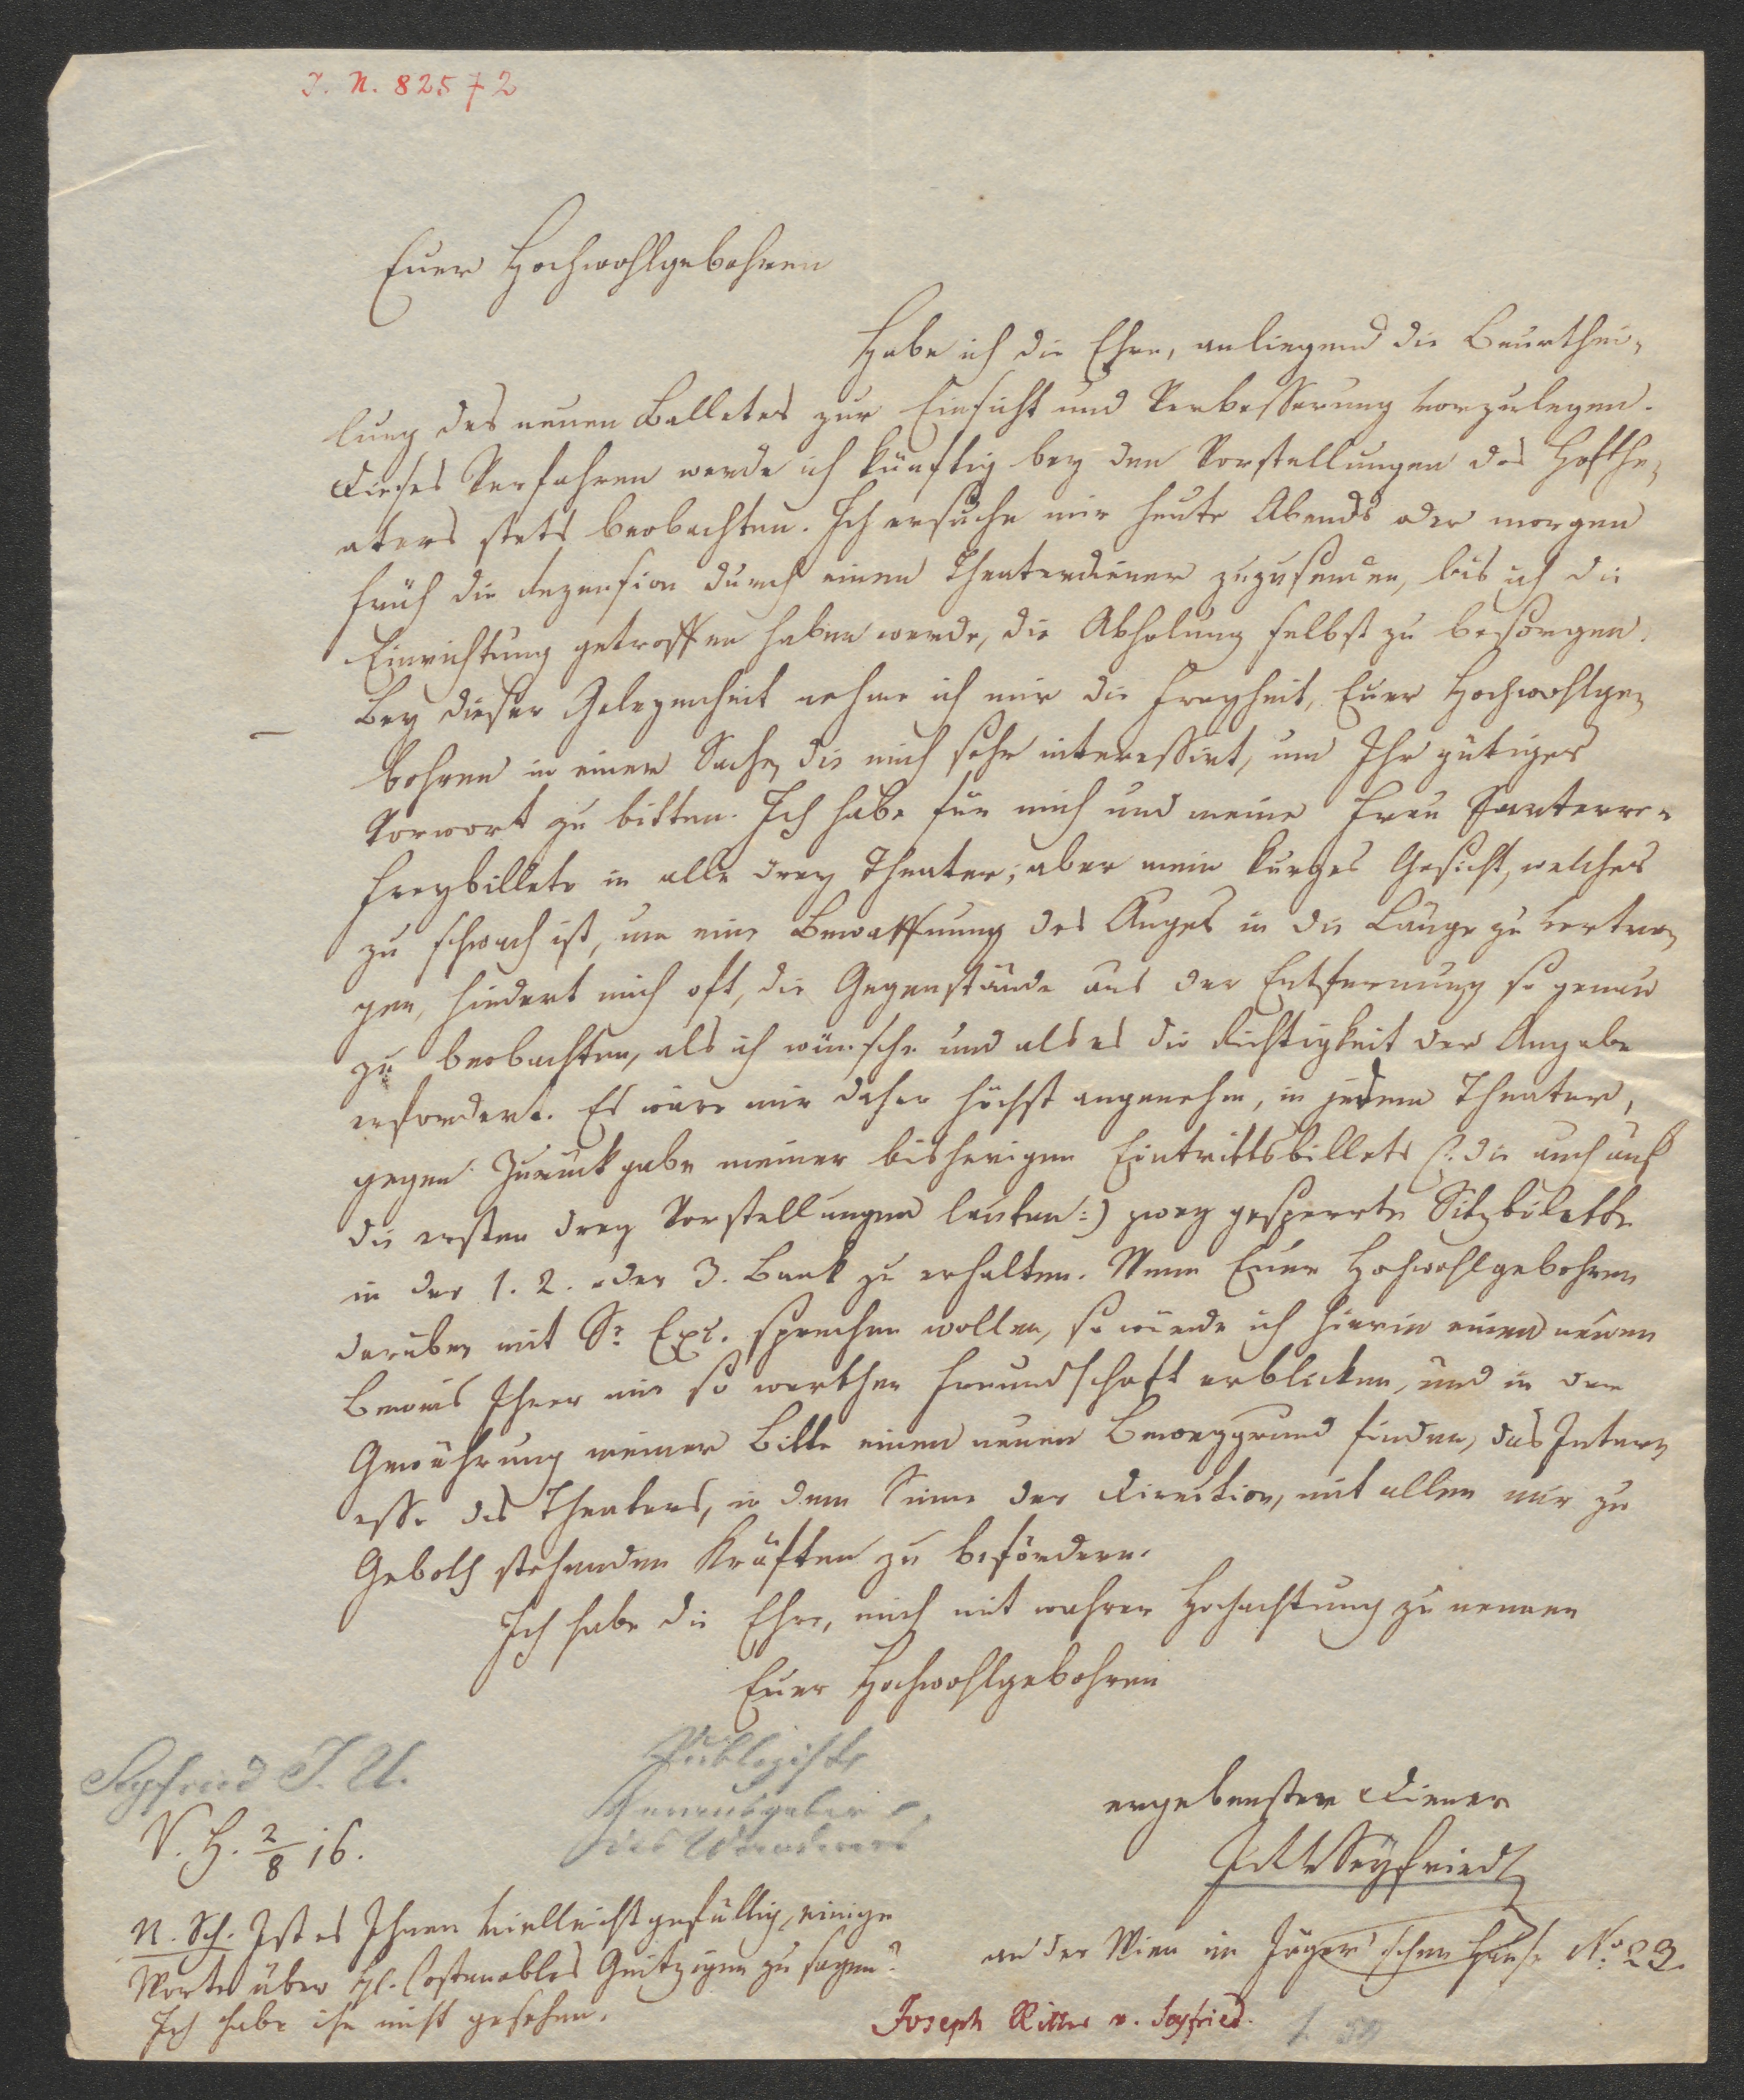 I. N. 82572
Euer Hochwohlgebohren
Habe ich die Ehre, anliegend die Beurthei-
lung des neuen Balletes zur Einsicht und Verbesserung vorzulegen.
Dieses Verfahren werde ich künftig bey den Vorstellungen des Hofthe-
aters stets beobachten. Ich ersuche mir heute Abends oder morgen
früh die Rezension durch einen Theaterdiener zuzusenden, bis ich die
Einrichtung getroffen haben werde, die Abholung selbst zu besorgen.
Bey dieser Gelegenheit nehme ich mir die Freyheit, Euer Hochwohlge-
bohren in einer Sache, die mich sehr interessirt, um Ihr gütiges
Vorwort zu bitten. Ich habe für mich und meine Frau Parterre-
Freybillete in alle drey Theater; aber mein kurzes Gesicht, welches
zu schwach ist, um eine Bewaffnung des Auges in die Länge zu vertra-
gen, hindert mich oft, die Gegenstände aus der Entfernung so genau
zu beobachten, als ich wünsche und als es die Richtigkeit der Angabe
erfordert. Es wäre mir daher höchst angenehm, in jedem Theater,
gegen Zurückgabe meiner bisherigen Eintrittsbillets (: die auch auf
die ersten drey Vorstellungen lauten :) zwey gesperrte Sitzbillette
in der 1. 2. oder 3. Bank zu erhalten. Wenn Euer Hochwohlgebohren
darüber mit Sr. Exc. sprechen wollen, so würde ich hierin einen neuen
Beweis Ihrer mir so werthen Freundschaft erblicken, und in der
Gewährung meiner Bitte einen neuen Beweggrund finden, das Inter-
esse des Theaters, in dem Sinne der Direction, mit allen mir zu
Geboth stehenden Kräften zu befördern.
Ich habe die Ehre, mich mit wahrer Hochachtung zu nennen
Euer Hochwohlgebohren
Seyfried J. R.
Publizist
Herausgeber
des Wanderers
ergebenster Diener
JRvSeyfried
V. H. 2/8 16.
an der Wien im Jäger'schen Hause No. 23.
N. Sch. Ist es Ihnen vielleicht gefällig, einige
Worte über H. Costenobles Geitzigen zu sagen?
Ich habe ihn nicht gesehen.
Joseph Ritter v. Seyfried.